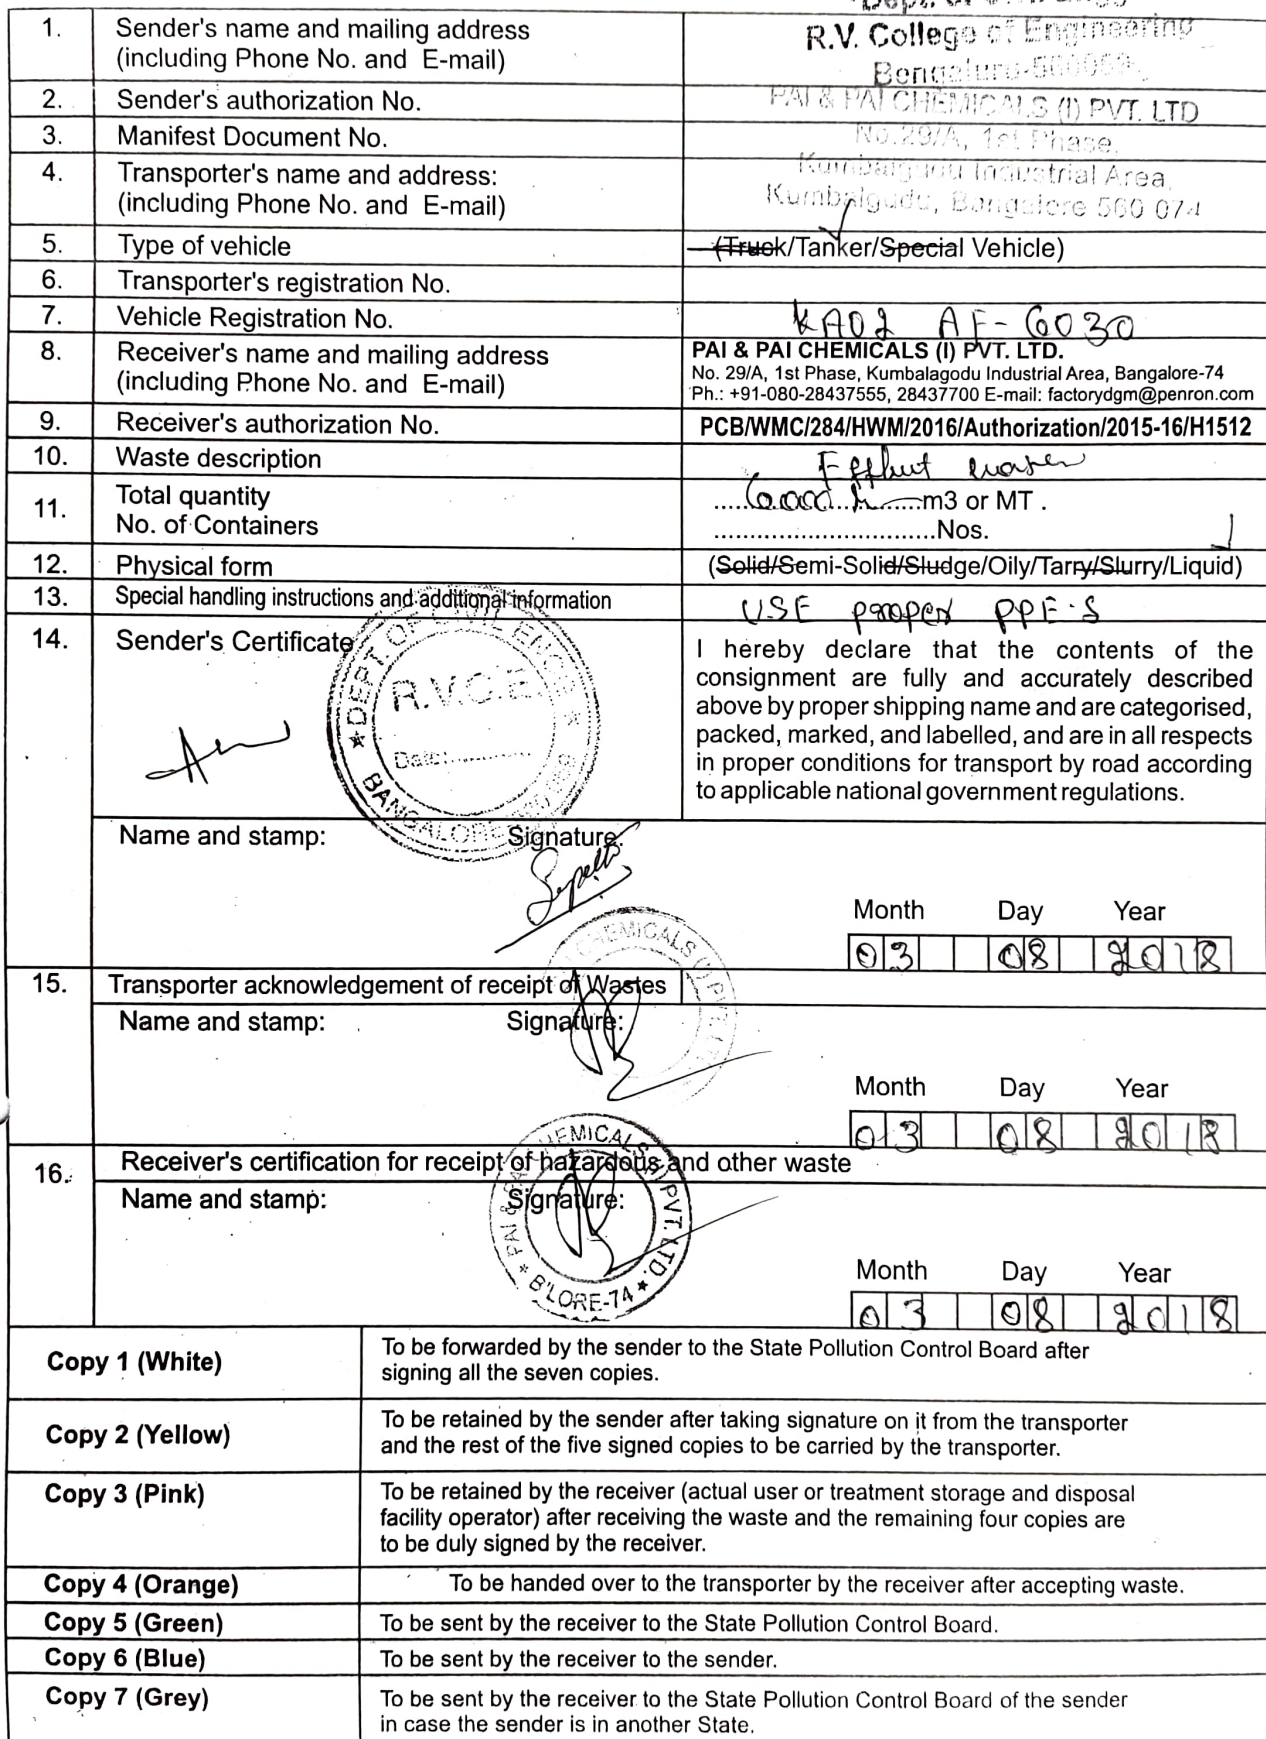 1. Sender's name and mailing address
(including Phone No. and E-mail)
R.V. College of Engineering
Bengaluru-560059
2. Sender's authorization No.
PAI & PAI CHEMICALS (I) PVT. LTD
3. Manifest Document No.
No.29/A, 1st Phase,
4. Transporter's name and address:
(including Phone No. and E-mail)
Kumbalgudu Industrial Area,
Kumbalgudu, Bangalore 560 074
5. Type of vehicle (Truck/Tanker/Special Vehicle)
6. Transporter's registration No.
7. Vehicle Registration No. KA02 AF-6030
8. Receiver's name and mailing address
(including Phone No. and E-mail)
PAI & PAI CHEMICALS (I) PVT. LTD.
No. 29/A, 1st Phase, Kumbalagodu Industrial Area, Bangalore-74
Ph.: +91-080-28437555, 28437700 E-mail: factorydgm@penron.com
9. Receiver's authorization No. PCB/WMC/284/HWM/2016/Authorization/2015-16/H1512
10. Waste description
11. Total quantity
No. of Containers
.....6000.........m3 or MT .
................................Nos.
12. Physical form (Solid/Semi-Solid/Sludge/Oily/Tarry/Slurry/Liquid)
13. Special handling instructions and additional information USE proper PPE-S
14. Sender's Certificate
★ DEPT OF CIVIL ENGG ★
R.V.C.E.
Date:............
BANGALORE
I hereby declare that the contents of the
consignment are fully and accurately described
above by proper shipping name and are categorised,
packed, marked, and labelled, and are in all respects
in proper conditions for transport by road according
to applicable national government regulations.
Name and stamp: Signature:
Month Day Year
03 08 2018
CHEMICALS (I) PVT. LT
15. Transporter acknowledgement of receipt of Wastes
Name and stamp: Signature:
Month Day Year
03 08 2018
16. Receiver's certification for receipt of hazardous and other waste
Name and stamp: Signature:
★ PAI & PAI CHEMICALS (I) PVT. LTD. ★
B'LORE-74
Month Day Year
03 08 2018
Copy 1 (White) To be forwarded by the sender to the State Pollution Control Board after
signing all the seven copies.
Copy 2 (Yellow) To be retained by the sender after taking signature on it from the transporter
and the rest of the five signed copies to be carried by the transporter.
Copy 3 (Pink) To be retained by the receiver (actual user or treatment storage and disposal
facility operator) after receiving the waste and the remaining four copies are
to be duly signed by the receiver.
Copy 4 (Orange) To be handed over to the transporter by the receiver after accepting waste.
Copy 5 (Green) To be sent by the receiver to the State Pollution Control Board.
Copy 6 (Blue) To be sent by the receiver to the sender.
Copy 7 (Grey) To be sent by the receiver to the State Pollution Control Board of the sender
in case the sender is in another State.